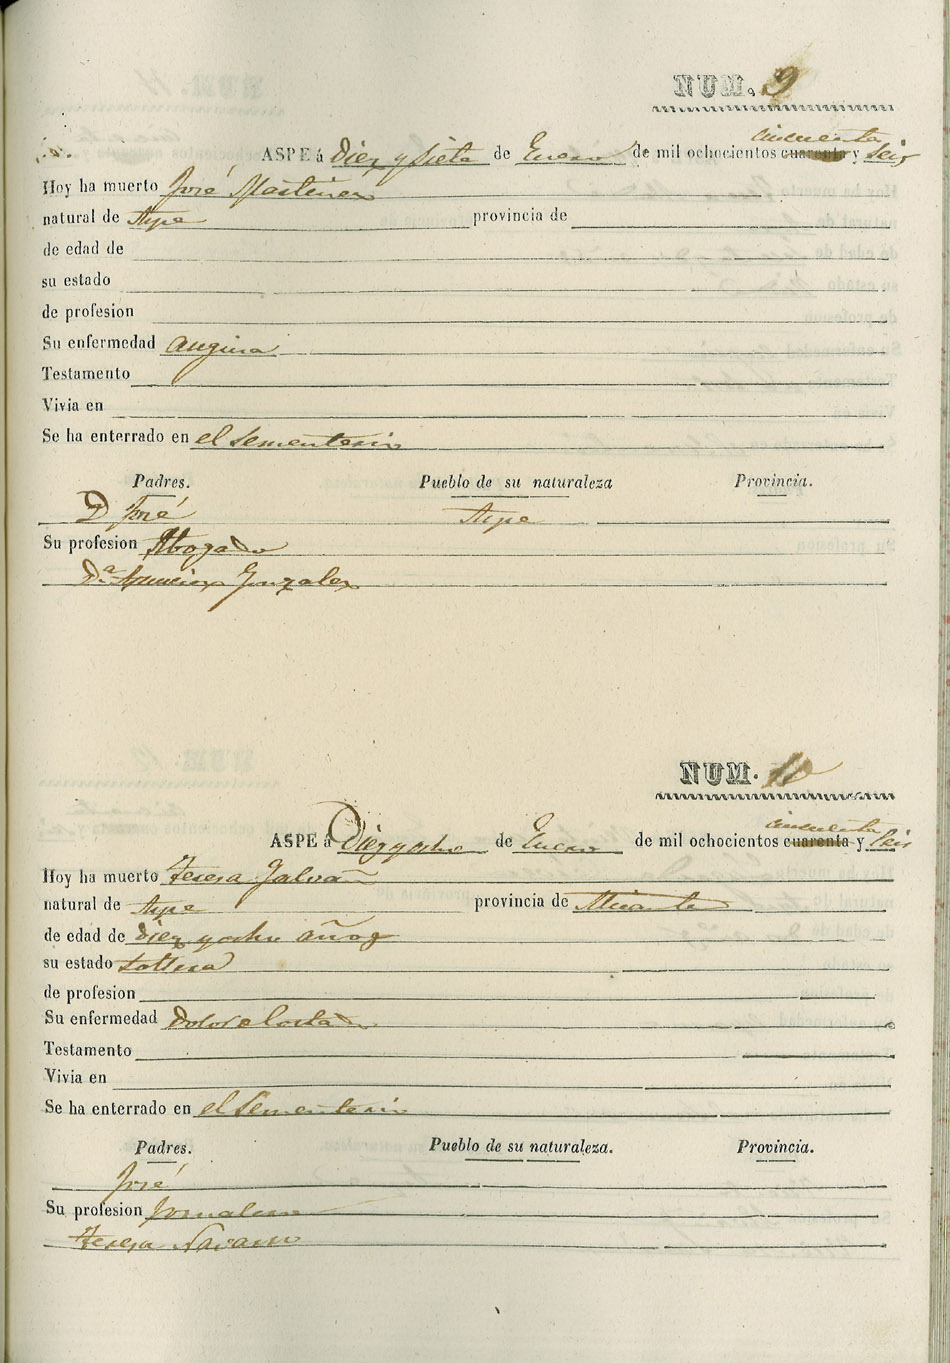 NUM. 9
cincuenta
ASPE á Diez y siete de Enero de mil ochocientos cuarenta y seis
Hoy ha muerto José Martinez
natural de Aspe provincia de
de edad de
su estado
de profesion
Su enfermedad angina
Testamento
Vivia en
Se ha enterrado en el Sementerio
Padres. Pueblo de su naturaleza Provincia.
D José Aspe
Su profesion Abogado
Dª Asuncion Gonzalez
NUM. 10
cincuenta
ASPE á Diez y ocho de Enero de mil ochocientos cuarenta y seis
Hoy ha muerto Teresa Galvañ
natural de Aspe provincia de Alicante
de edad de diez y ocho años
su estado Soltera
de profesion
Su enfermedad Dolor costado
Testamento
Vivia en
Se ha enterrado en el Sementerio
Padres. Pueblo de su naturaleza. Provincia.
José
Su profesion Jornalero
Teresa Navarro